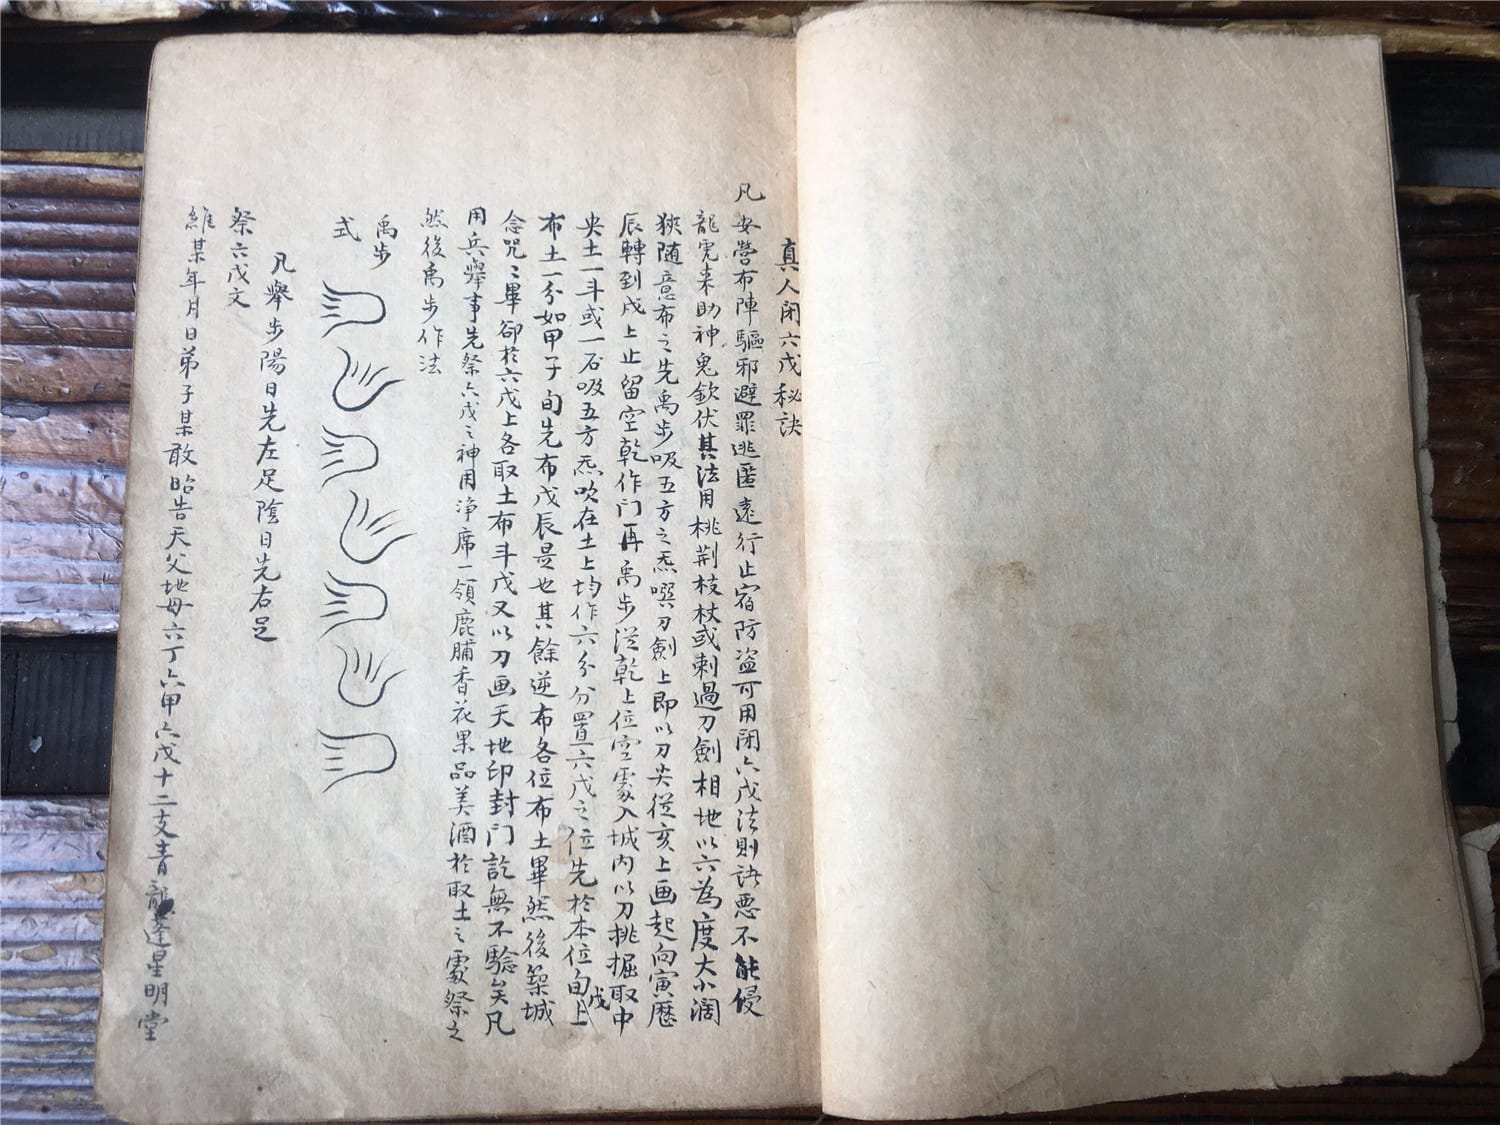 真人閉六戊秘訣
凡安營布陣驅邪避罪逃匿遠行止宿防盜可用閉六戊法則諸惡不能侵
龍虎來助神鬼欽伏其法用桃荊枝杖或刺過刀劍相地以六為度大小濶
狹隨意布之先禹步吸五方之炁噀刀劍上即以刀尖從亥上画起向寅歷
辰轉到戌上止留空乾作門再禹步從乾上位空處入城內以刀挑掘取中
央土一斗或一石吸五方炁吹在土上均作六分分置六戊之位先於本位旬戊上
布土一分如甲子旬先布戊辰是也其餘逆布各位布土畢然後築城
念咒〻畢卻於六戊上各取土布斗戊又以刀画天地印封門訖無不驗矣凡
用兵舉事先祭六戊之神用淨席一領鹿脯香花果品美酒於取土之處祭之
然後禹步作法
禹步
式
凡舉步陽日先左足陰日先右足
祭六戊文
維某年月日弟子某敢昭告天父地母六丁六甲六戊十二支青龍蓬星明堂